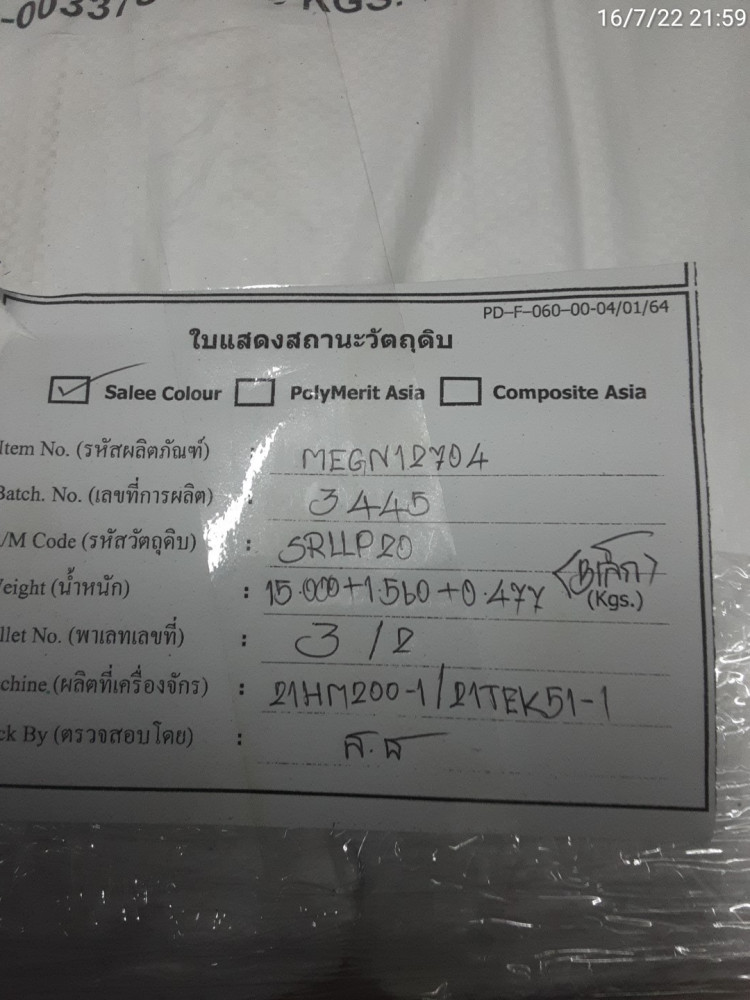 -00337
KGS.
16/7/22 21:59
PD-F-060-00-04/01/64
ใบแสดงสถานะวัตถุดิบ
Salee Colour PolyMerit Asia Composite Asia
Item No. (รหัสผลิตภัณฑ์) : MEGN12704
Batch. No. (เลขที่การผลิต) : 3445
/M Code (รหัสวัตถุดิบ) : SRLLP20
eight (น้ำหนัก) : 15.000+1.560+0.477 (Kgs.)
llet No. (พาเลทเลขที่) : 3/2
chine.(ผลิตที่เครื่องจักร) : 21HM200-1/21TEK51-1
ck By (ตรวจสอบโดย) :